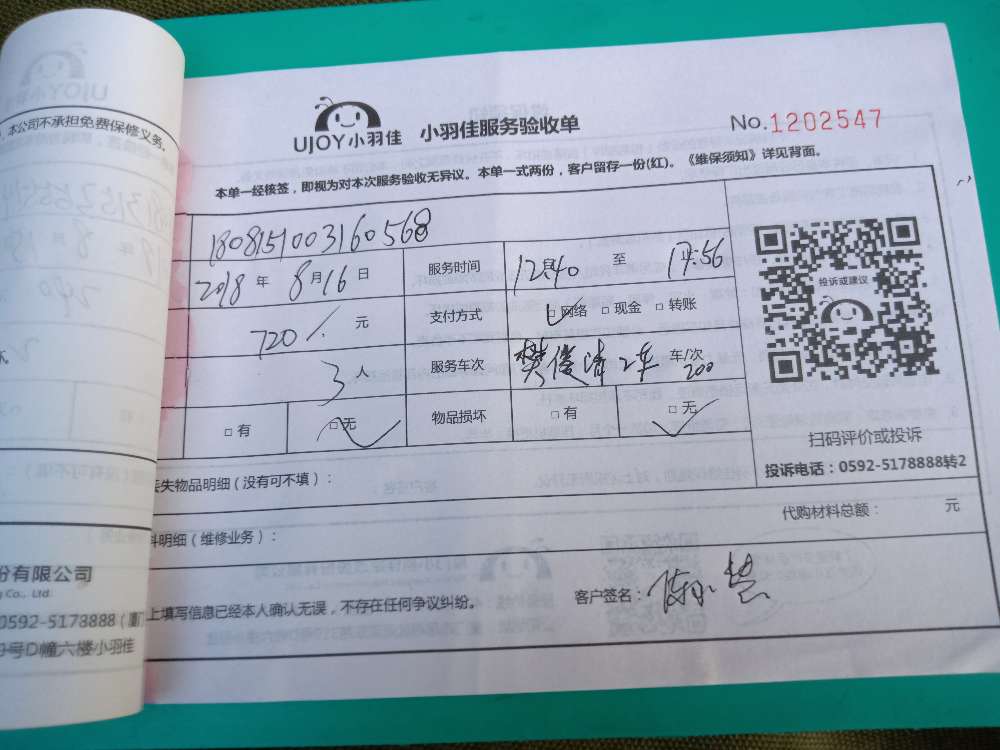 UJOY小羽佳 小羽佳服务验收单 No.1202547
本单一经核签，即视为对本次服务验收无异议。本单一式两份，客户留存一份(红)。《维保须知》详见背面。
180815100316056８
2018 年 8 月 16 日 服务时间 12:40 至 17:56
720/. 元 支付方式 □ 网络 □ 现金 □ 转账
3 人 服务车次 樊俊峰 2车 车/次
200
□ 有 □ 无 物品损坏 □ 有 □ 无
投诉或建议
扫码评价或投诉
投诉电话：0592-5178888转2
丢失物品明细（没有可不填）：
代购材料总额： 元
料明细（维修业务）：
上填写信息已经本人确认无误，不存在任何争议纠纷。 客户签名：
本公司不承担免费保修义务。
份有限公司
ng Co., Ltd.
0592-5178888 (厦门
9号D幢六楼小羽佳